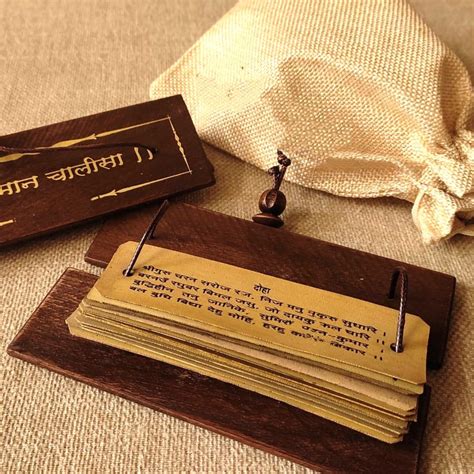 मान चालीसा ।।
दोहा
श्रीगुरु चरन सरोज रज, निज मनु मुकुरु सुधारि ।
बरनउँ रघुबर बिमल जसु, जो दायकु फल चारि ।।
बुद्धिहीन तनु जानिके, सुमिरौं पवन-कुमार ।
बल बुधि बिद्या देहु मोहिं, हरहु बिकार ।।